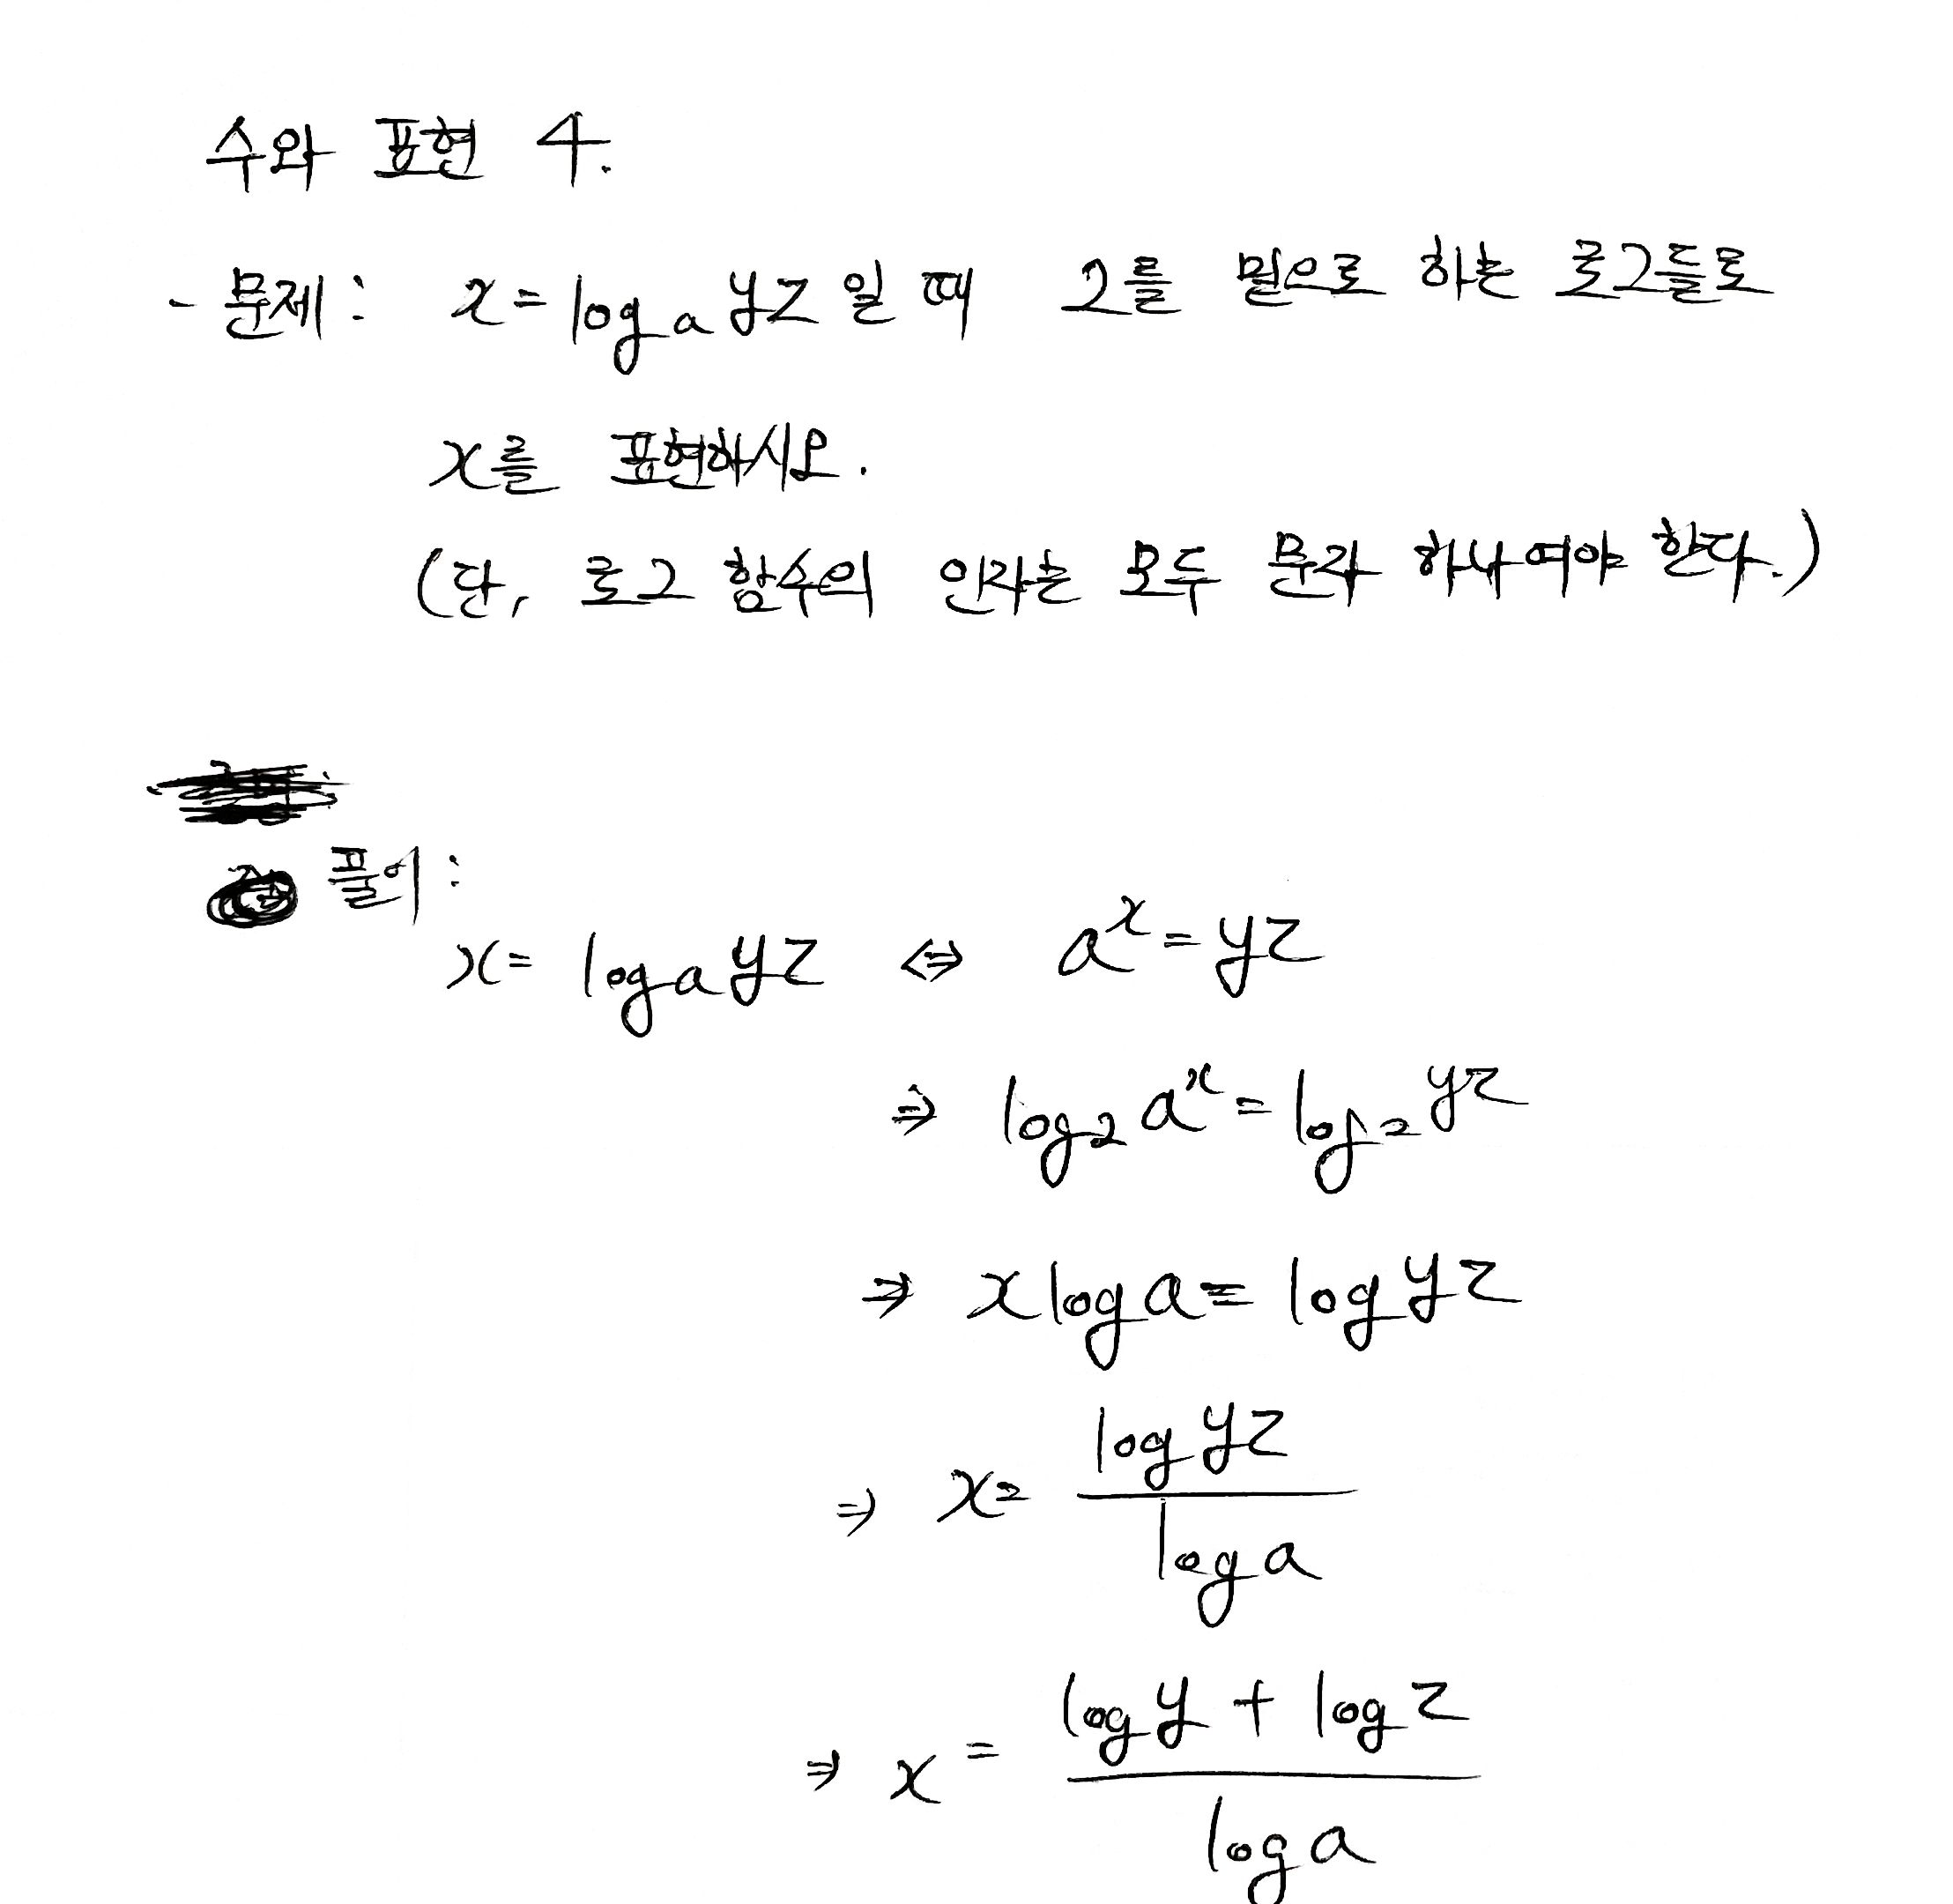 수와 표현 4.
- 문제: x = log_a yz 일 때 2를 밑으로 하는 로그들로
x를 표현하시오.
(단, 로그 함수의 인자는 모두 문자 하나여야 한다.)
풀이:
x = log_a yz ⇔ a^x = yz
⇒ log_2 a^x = log_2 yz
⇒ x log a = log yz
⇒ x = \frac{log yz}{log a}
⇒ x = \frac{log y + log z}{log a}